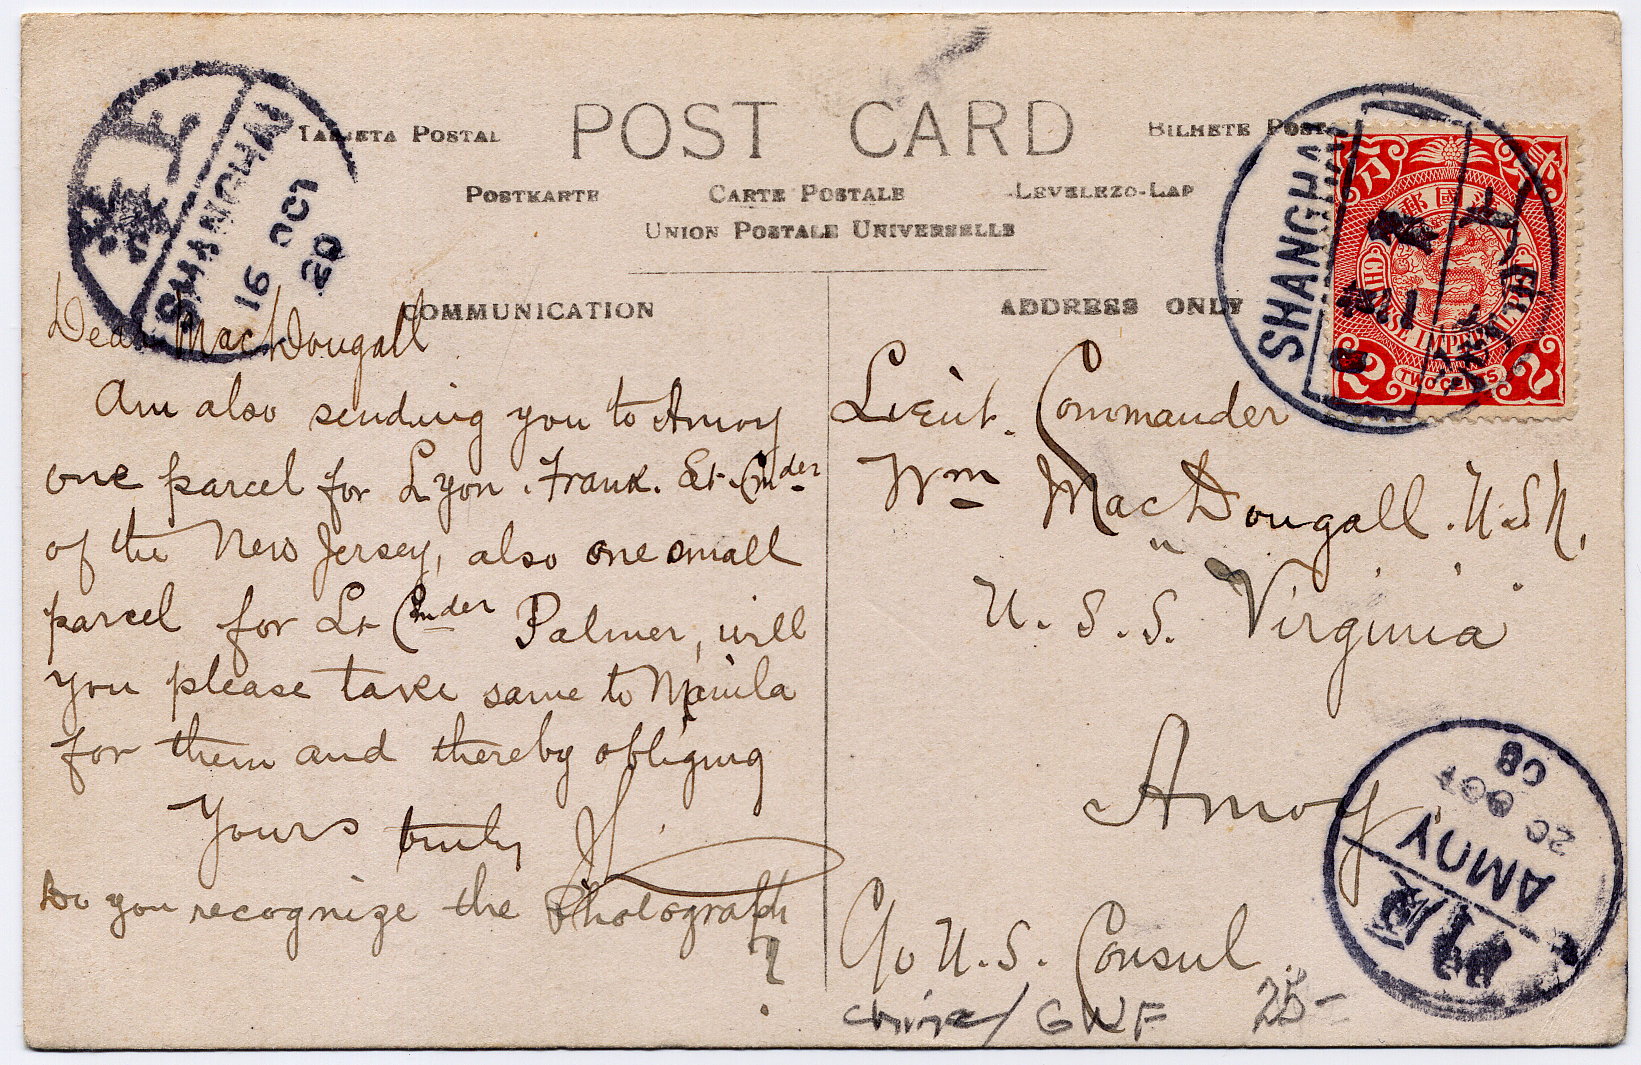 POST CARD
TARJETA POSTAL
BILHETE POST
POSTKARTE CARTE POSTALE LEVELEZO-LAP
UNION POSTALE UNIVERSELLE
COMMUNICATION
ADDRESS ONLY
SHANGHAI
16 OCT
SHANGHAI
TWO CENTS
Dear MacDougall
Am also sending you to Amoy
one parcel for Lyon. Frank. Lt. Cmder
of the New Jersey, also one small
parcel for Lt Cmder Palmer, will
you please take same to Manila
for them and thereby obliging
Yours truly
Do you recognize the Photograph
?
Lieut. Commander
Wm MacDougall. U.S.N.
U.S.S. Virginia
Amoy
C/o U.S. Consul
china/ GWF 25-
廈門
AMOY
20 OCT
08